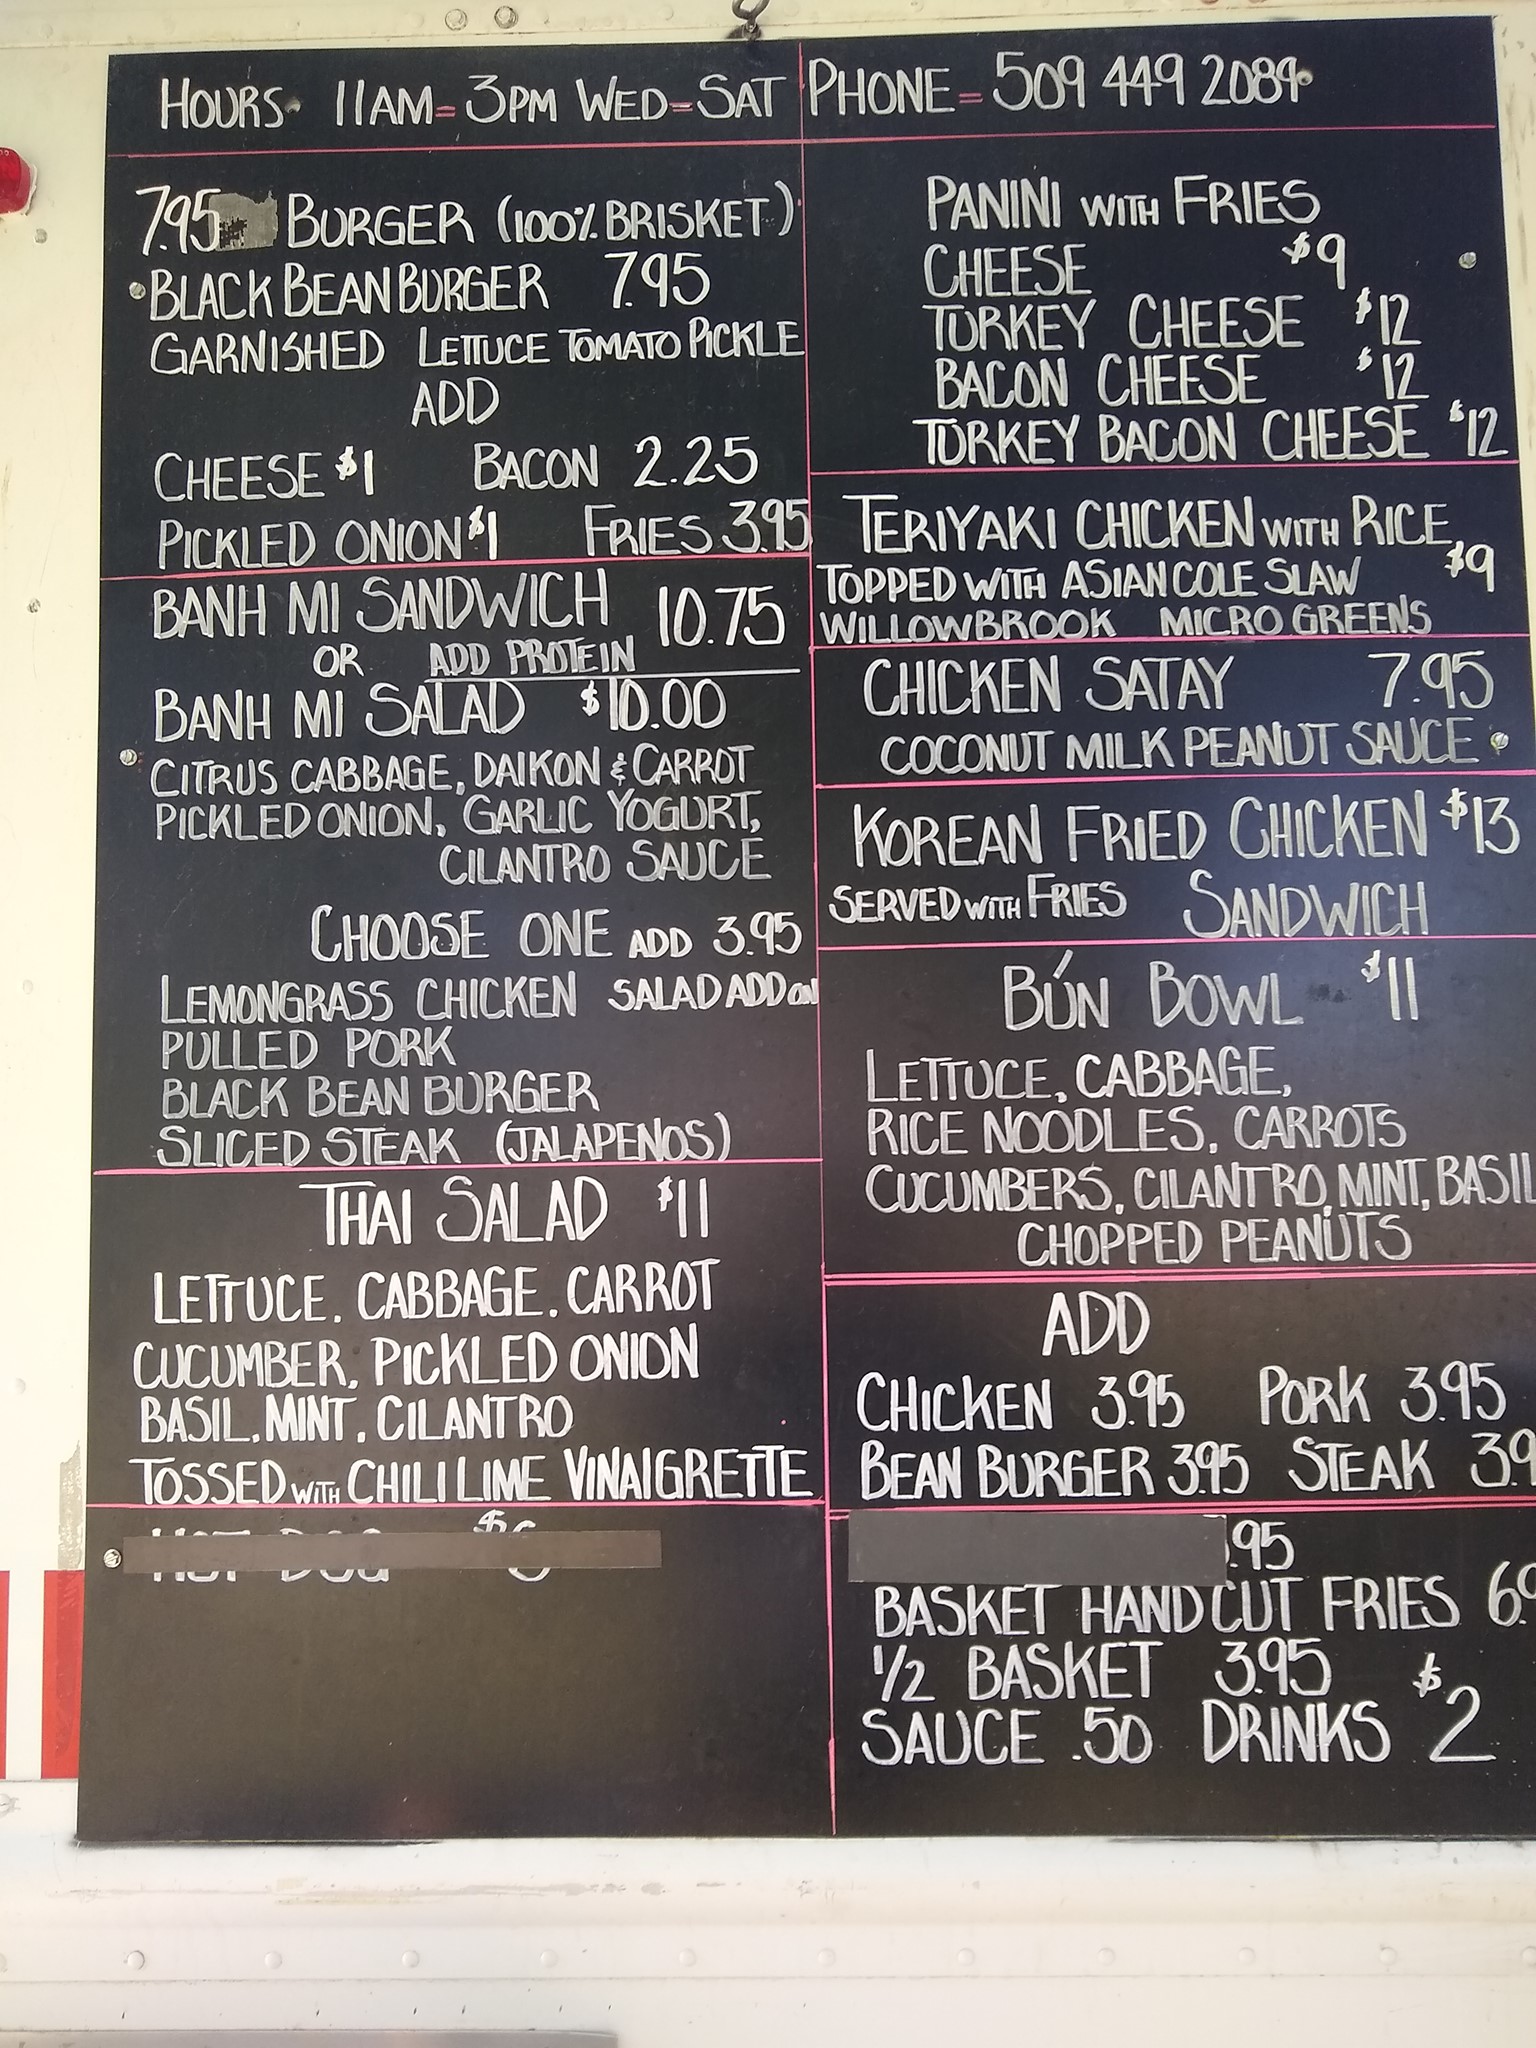 HOURS 11AM = 3PM WED = SAT
PHONE = 509 449 2089
7.95 BURGER (100% BRISKET)
BLACK BEAN BURGER 7.95
GARNISHED LETTUCE TOMATO PICKLE
ADD
CHEESE $1 BACON 2.25
PICKLED ONION $1 FRIES 3.95
BANH MI SANDWICH 10.75
OR ADD PROTEIN
BANH MI SALAD $10.00
CITRUS CABBAGE, DAIKON & CARROT
PICKLED ONION, GARLIC YOGURT,
CILANTRO SAUCE
CHOOSE ONE ADD 3.95
LEMONGRASS CHICKEN SALAD ADD ON
PULLED PORK
BLACK BEAN BURGER
SLICED STEAK (JALAPENOS)
THAI SALAD $11
LETTUCE, CABBAGE, CARROT
CUCUMBER, PICKLED ONION
BASIL, MINT, CILANTRO
TOSSED WITH CHILI LIME VINAIGRETTE
PANINI WITH FRIES
CHEESE $9
TURKEY CHEESE $12
BACON CHEESE $12
TURKEY BACON CHEESE $12
TERIYAKI CHICKEN WITH RICE
TOPPED WITH ASIAN COLE SLAW $9
WILLOWBROOK MICRO GREENS
CHICKEN SATAY 7.95
COCONUT MILK PEANUT SAUCE
KOREAN FRIED CHICKEN $13
SERVED WITH FRIES SANDWICH
BÚN BOWL $11
LETTUCE, CABBAGE,
RICE NOODLES, CARROTS
CUCUMBERS, CILANTRO, MINT, BASIL
CHOPPED PEANUTS
ADD
CHICKEN 3.95 PORK 3.95
BEAN BURGER 3.95 STEAK 3.9
.95
BASKET HAND CUT FRIES 6.9
1/2 BASKET 3.95
SAUCE .50 DRINKS $2